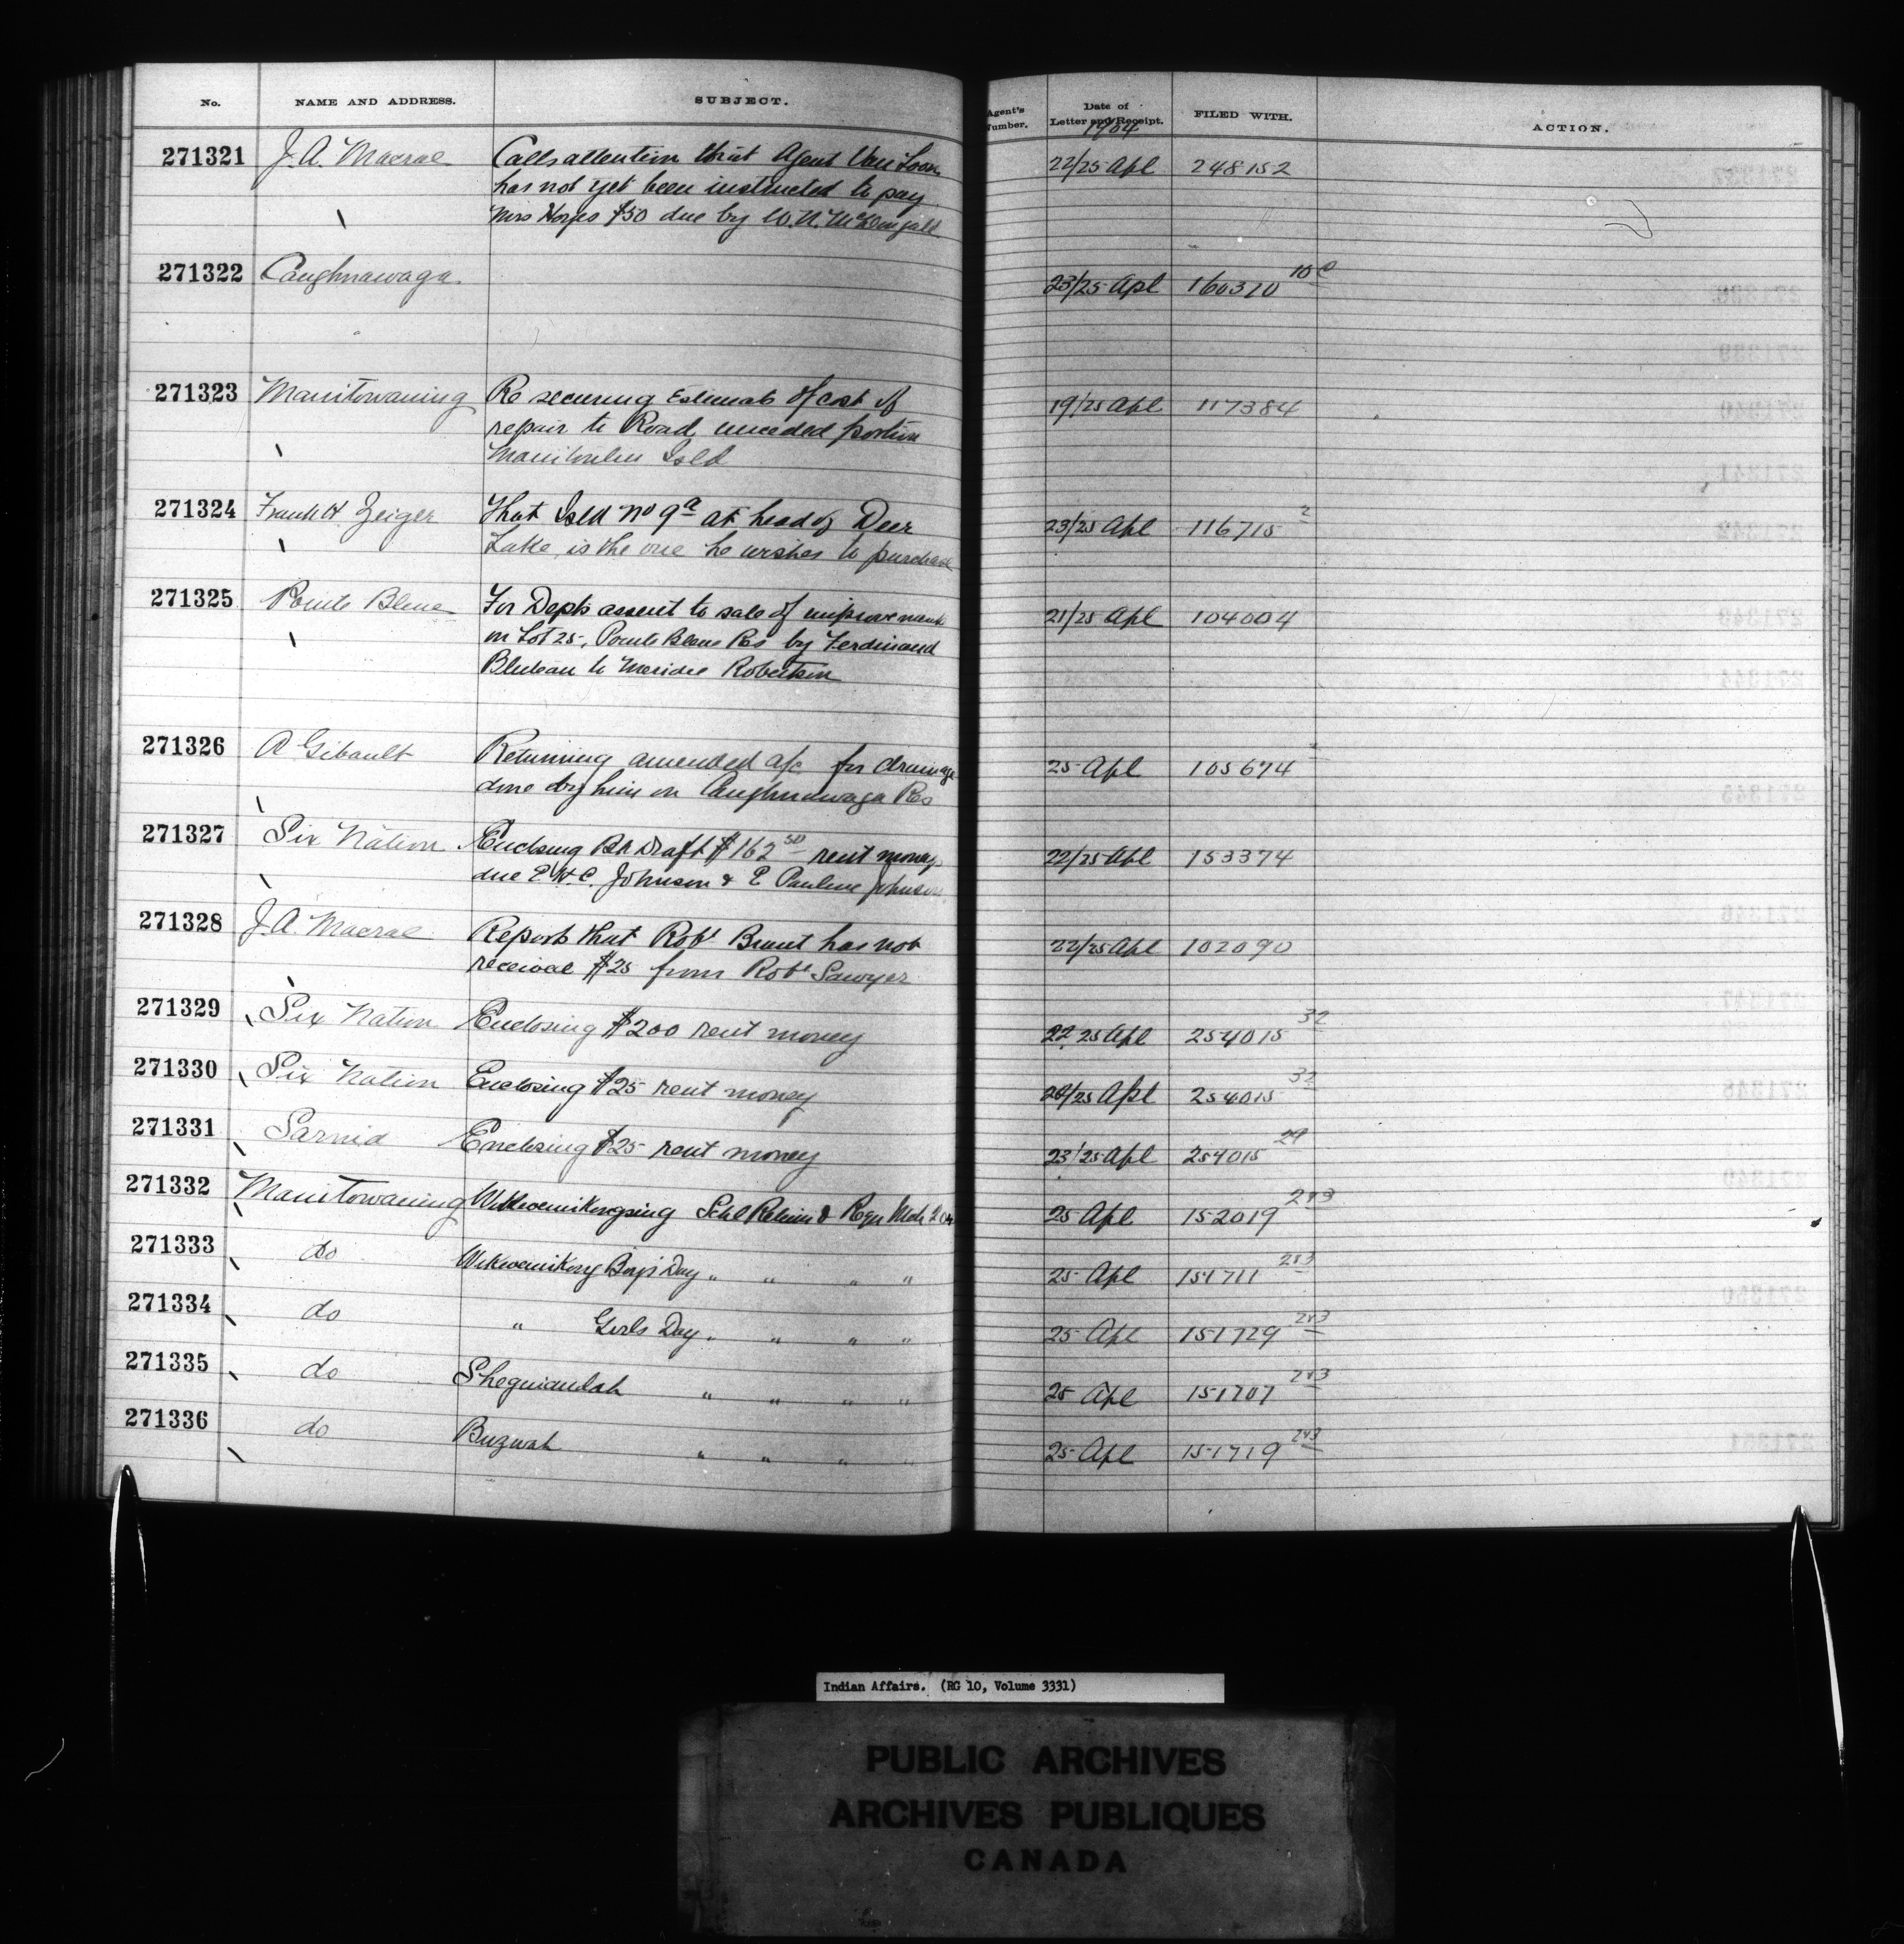 No. NAME AND ADDRESS. SUBJECT. Agent's Number. Date of Letter and Receipt. FILED WITH. ACTION.
1904
271321 J. A. Macrae Calls attention that Agent Van Loon 22/25 Apl 248152
has not yet been instructed to pay
Mrs Hayes $50 due by W. N. McDougall
271322 Caughnawaga 23/25 Apl 160310
271323 Manitowaning Re securing Estimate of cost of 19/25 Apl 117384
repair to Road unceded portion
Manitoulin Isld
271324 Frank H Zeiger That Isld No 9a at head of Deer 23/25 Apl 116715 2
Lake, is the one he wishes to purchase
271325 Pointe Bleue For Depts assent to sale of improvements 21/25 Apl 104004
on Lot 25, Pointe Bleue Res by Ferdinand
Bluteau to Robertson
271326 A Gibault Returning amended a/c for drainage 25 Apl 105674
done by him on Caughnawaga Res
271327 Six Nation Enclosing Bk Draft $162 50 rent money 22/25 Apl 153374
due E. H. C. Johnson & E. Pauline Johnson
271328 J. A. Macrae Reports that Robt Brant has not 22/25 Apl 102090
received $25 from Robt Sawyer
271329 Six Nation Enclosing $200 rent money 22 25 Apl 254015 32
271330 Six Nation Enclosing $25 rent money /25 Apl 254015 32
271331 Sarnia Enclosing $25 rent money 23/25 Apl 254015 29
271332 Manitowaning Wikwemikongsing Schl Return & Reqn Mch 25 Apl 152019 243
271333 do Wikwemikong Boys Day " " " " 25 Apl 151711 243
271334 do " Girls Day " " " " 25 Apl 151729 243
271335 do Sheguiandah " " " " 25 Apl 151707 243
271336 do Buzwah " " " " 25 Apl 151719 243
Indian Affairs. (RG 10, Volume 3331)
PUBLIC ARCHIVES
ARCHIVES PUBLIQUES
CANADA